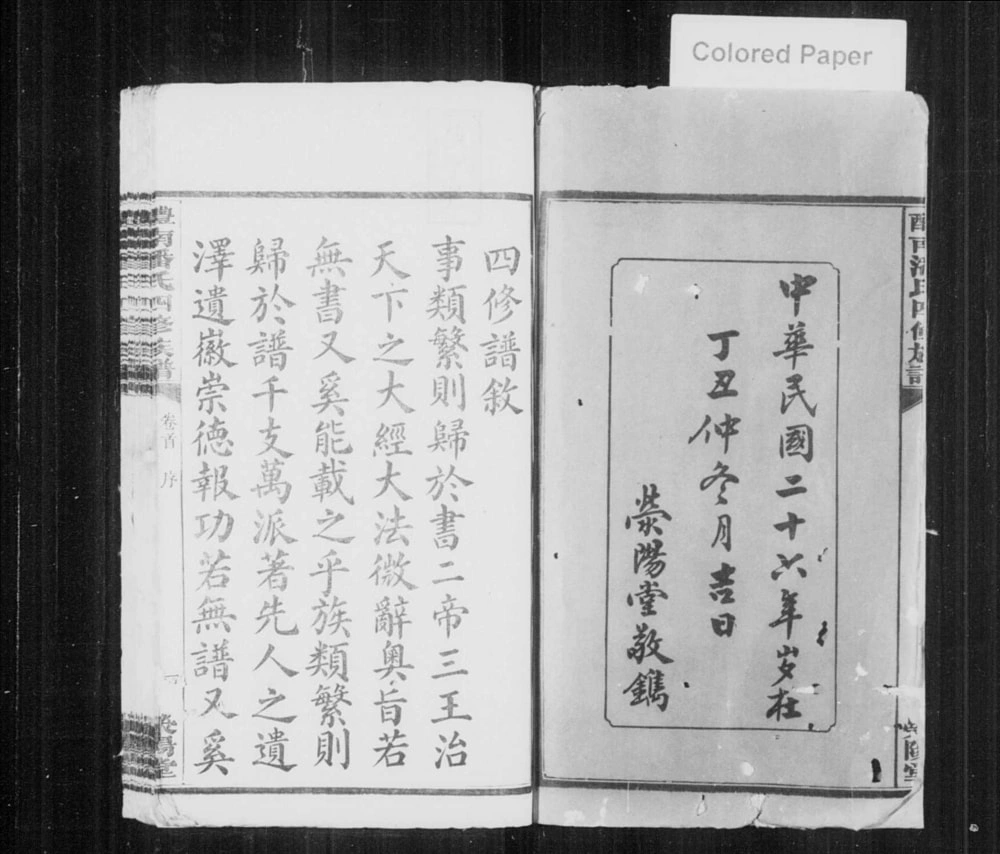 Colored Paper
中華民國二十六年岁在
丁丑仲冬月吉日
滎陽堂敬鐫
四修譜敘
事類繁則歸於書二帝三王治
天下之大經大法微辭奧旨若
無書又奚能載之乎族類繁則
歸於譜千支萬派著先人之遺
澤遺徽崇德報功若無譜又奚
南潘氏四修族譜
卷首
序